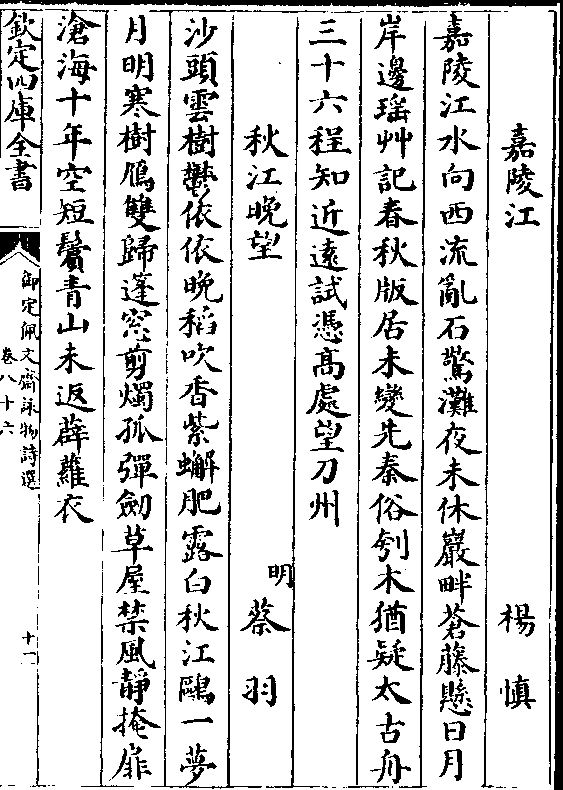 嘉陵江　楊慎
嘉陵江水向西流亂石驚灘夜未休巖畔蒼藤懸日月
岸邊瑶艸記春秋版居未變先秦俗刳木猶疑太古舟
三十六程知近遠試憑髙處望刀州
秋江晚望　明蔡羽
沙頭雲樹鬱依依晚稻吹香紫蠏肥露白秋江鷗一夢
月明寒樹鴈雙歸篷窓剪燭孤彈劒草屋禁風靜掩扉
滄海十年空短鬢青山未返薜蘿衣
欽定四庫全書
御定佩文齋詠物詩選
卷八十六
十一